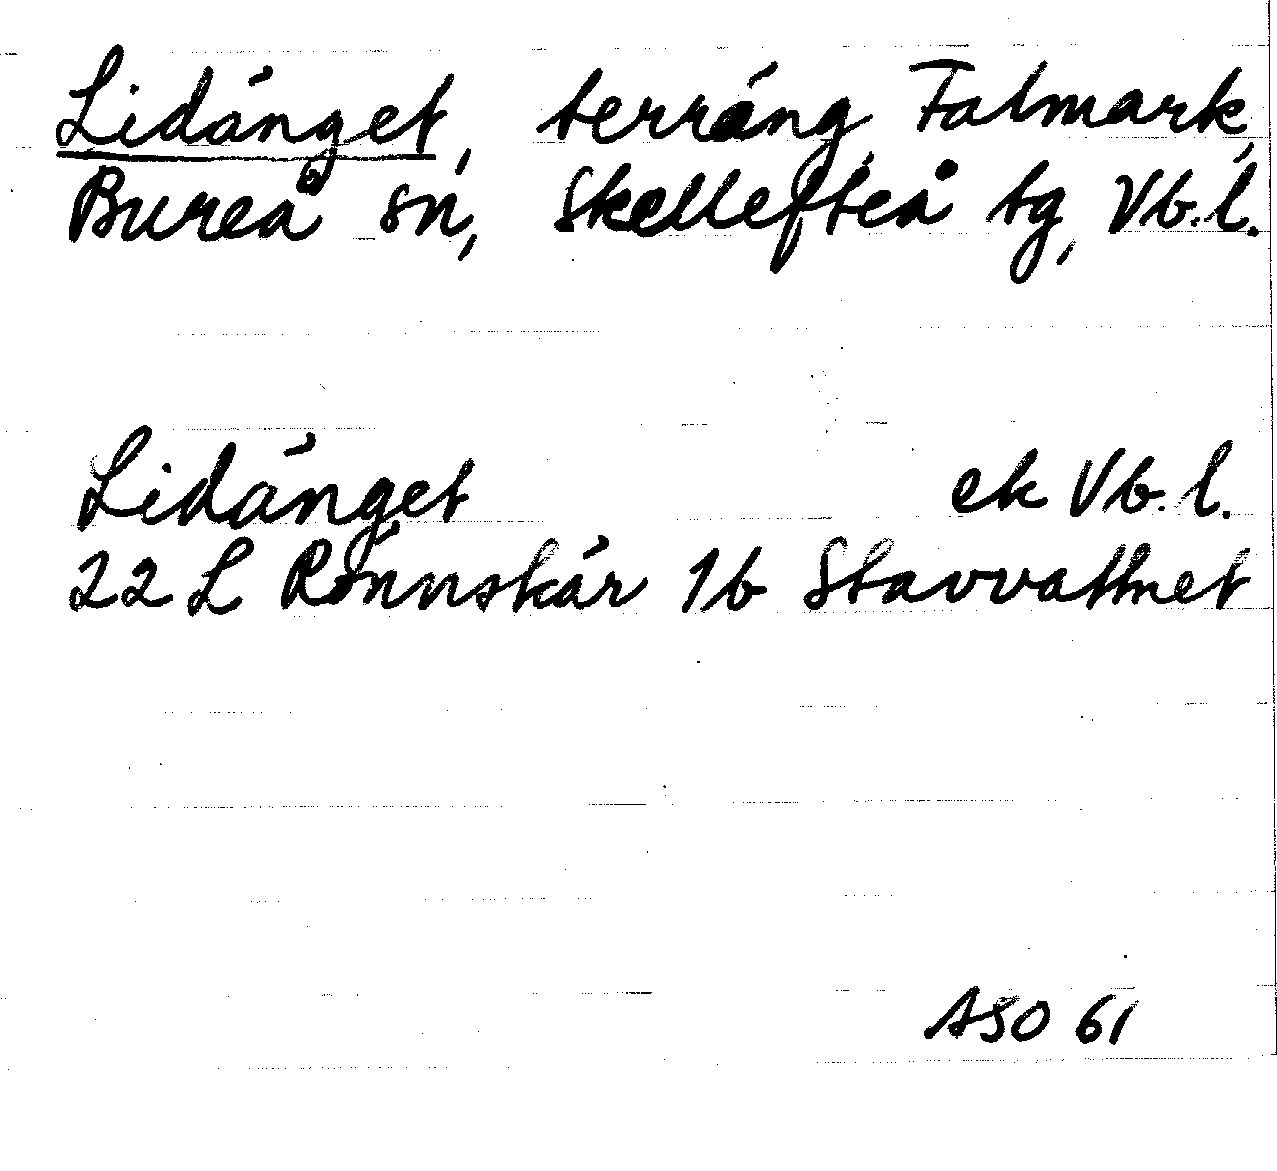 Lidänget, terräng Falmark,
Bureå sn, Skellefteå tg, Vb.l.
Lidänget ek Vb.l.
22 L Rönnskär 1b Stavvattnet
ASO 61